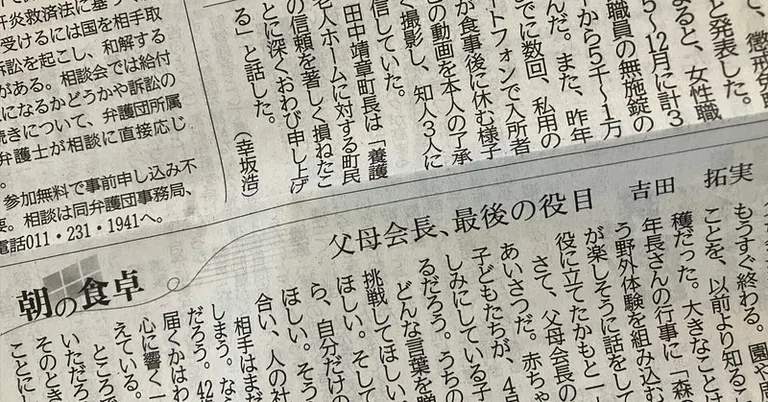 て、懲戒免
と発表した。
ると、女性職
5~12月に計3
職員の無施錠の
ーから5千~1万
んだ。また、昨年
でに数回、私用の
ートフォンで入所者
が食事後に休む様子
の動画を本人の了承
く撮影し、知人3人に
信していた。
田中靖章町長は「養護
老人ホームに対する町民
の信頼を著しく損ねたこ
とに深くおわび申し上げ
る」と話した。
(幸坂浩)
肝炎救済法に基づく
受けるには国を相手取
訴訟を起こし、和解する
がある。相談会では給付
になるかどうかや訴訟の
続きについて、弁護団所属
弁護士が相談に直接応じ
。
参加無料で事前申し込み不
要。相談は同弁護団事務局、
電話011・231・1941へ。
朝の食卓
父母会長、最後の役目
吉田 拓実
もうすぐ終わる。園や
ことを、以前より知るこ
穫だった。大きなことは
年長さんの行事に「森
う野外体験を組み込む
が楽しそうに話をして
役に立てたかもと一
さて、父母会長の
あいさつだ。赤ちゃ
子どもたちが、4月
しみにしている子
るだろう。うちの
どんな言葉を贈
挑戦してほしい
ほしい。そして
ら、自分だけの
ほしい。そう
合い、人の社
相手はまだ
しまう。な
だろう。42
届くかはわ
心に響く一
えている。
ところで
いただろ
そのとき
ことにし